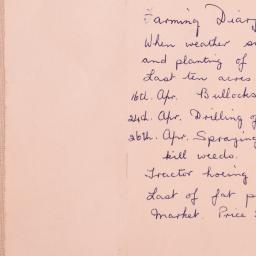 Farming Diary
When weather
and planting of
Last ten acres
16th. Apr. Bullocks
24th. Apr. Drilling
26th. Apr. Spraying
kill weeds.
Tractor hoeing
Last of fat
Market. Price